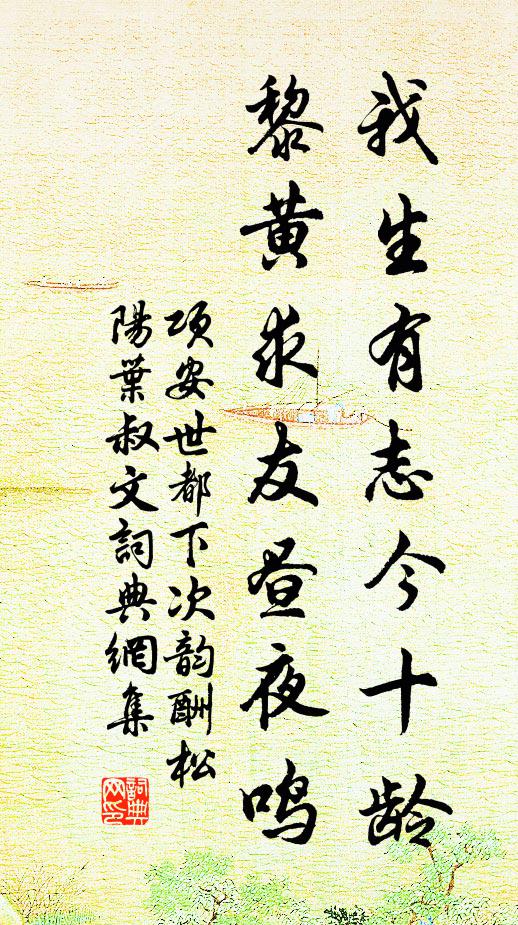 我生有志今十龄
黎黄求友昼夜鸣
项安世都下次韵酬松
陽葉叔文詞典網集
詞典
网印